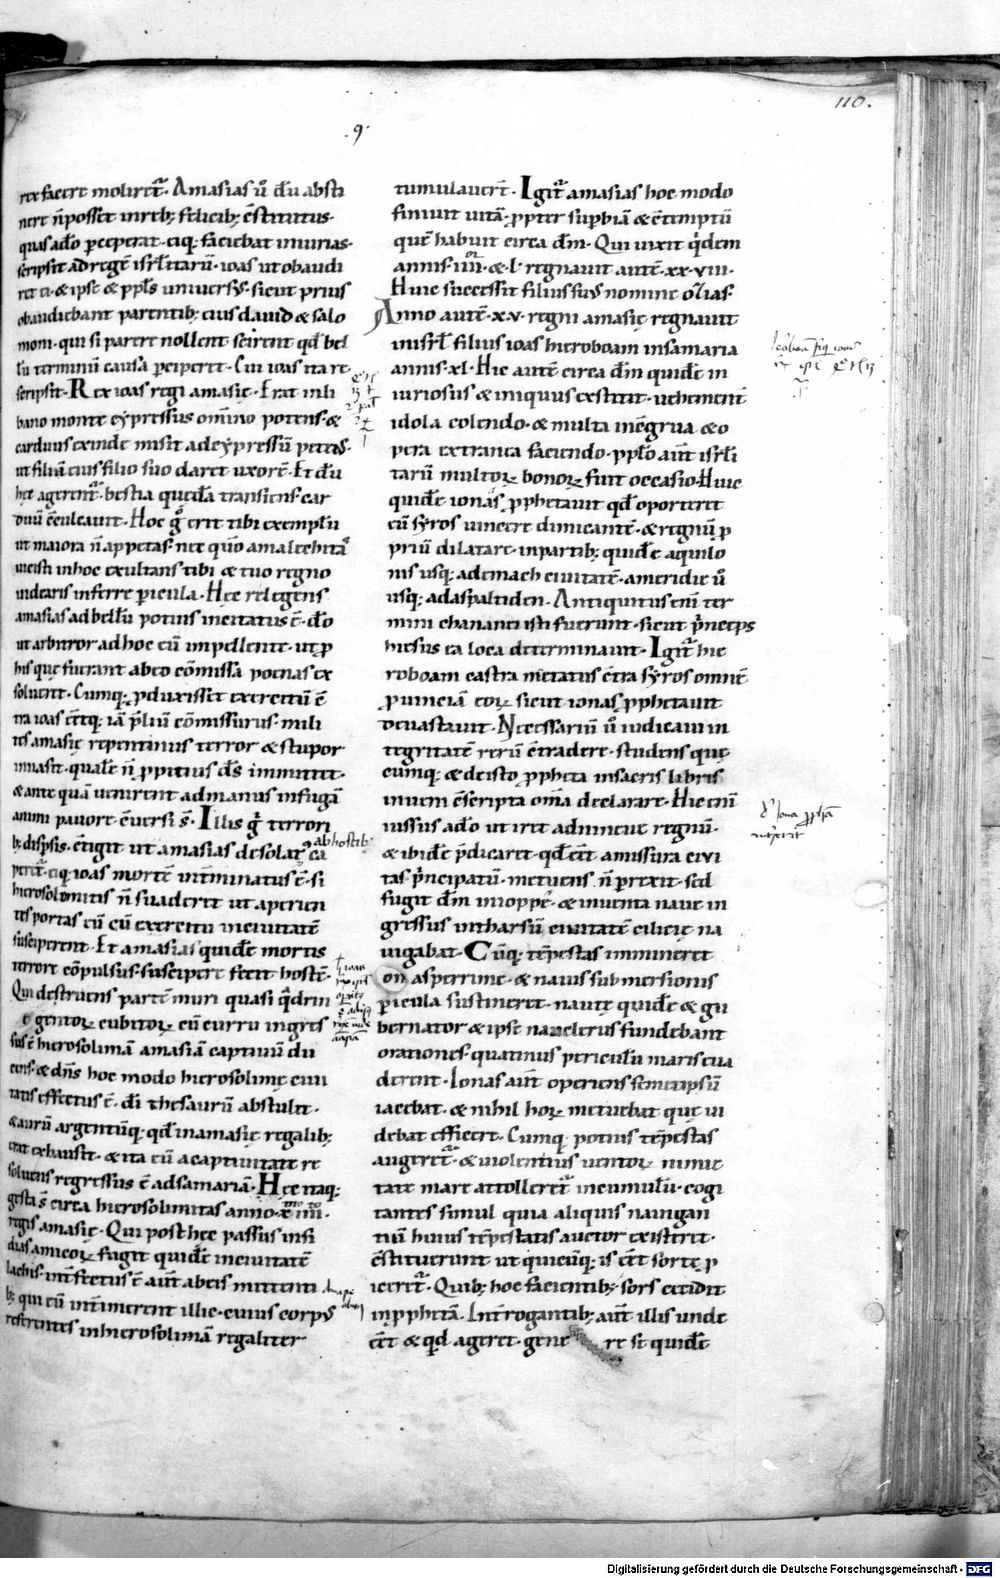 110.
.9.
rex facere moliret᷑. Amasias ů dū absti
nere n̄ posset in reb; felicib; c̄stitutus.
quas a dō pceperat. eiq; faciebat iniurias.
scripsit ad regē isrl̄itarū. ioas ut obaudi
ret ei. & ipse & ppl̄s universꝰ. sicut prius
obaudiebant parentib; eius david & salo
moni. qui si parere nollent scirent qd̄ bel
lū terminū causā pciperet. Cui ioas ita re
scripsit. Rex ioas regi amasię. Erat in li
bano monte cypressus om̄ino potens. &
carduus exinde misit ad cypressū petēs.
ut filiā eius filio suo daret uxorē. Et dū
hęc agerent᷑. bestia quedā transiens car
duū c̄culcavit. Hoc gͦ erit tibi exemplū
ut maiora n̄ appetas. nec quō amalechitaͦ
vicisti in hoc exultans tibi & tuo regno
videaris inferre picula. Hęc relegens
amasias ad bellū potius incitatus ē. dō
ut arbitror ad hoc eū impellente. ut p
his que fuerant ab eo cōmissā poenas ex
solveret. Cumq; pduxisset exercitū c̄
tra ioas c̄tq; iā p̄liū cōmissurus. mili
tes amasię repentinus terror & stupor
invasit. qualē n̄ ppitius ds̄ inmittet.
& ante quā venirent ad manus in fugā
animi pavore c̄versi s̄. Illis gͥ terrori
b; disp̄sis. c̄tigit ut amasias desolatꝰ ca ab hostib;
peret᷑. eiq; ioas mortē int̄minatus ē. si
hierosolomitis n̄ suaderet ut aperien
tes portas eū cū exercitu in civitatē
susciperent. Et amasias quidē mortis
terrore cōpulsus. suscipere fecit hostē.
Qui destruens partē muri quasi qͣdrin
gentoꝝ cubitoꝝ cū curru ingres
sus ē hierosolimā amasiā captivū du
cens. & dn̄s hoc modo hierosolimę civi
tatis effectus ē. dī thesaurū abstulit.
& aurū argentūq; qd̄ in amasię regalib;
erat exhausit. & ita eū a captivitate re
solvens regressus ē ad samariā. Hęc itaq;
gesta s̄ circa hierosolimitas anno.x̄.iiii.
regis amasię. Qui post hęc passus insi
dias amicoꝝ fugit quidē in civitatē
lachis. int̄fectus ē aūt ab eis mittenti
b; qui eū int̄imerent illic. cuius corpꝰ
referentes in hierosolimā regaliter
tumulaverт̄. Igit᷑ amasias hoc modo
finivit vitā. ppter supbiā & c̄temptū
quē habuit circa dm̄. Qui vixit qͥdem
annis. iiii. & .l. regnavit autē. xx.viii.
Huic successit filius suꝰ nomine ozias.
Anno autē. x.v. regni amasię regnavit
in isrl̄ filius ioas hieroboam in samaria
annis. xl. Hic autē circa dm̄ quidē in
iuriosus & iniquus extitit. vehementē
idola colendo. & multa incōgrua & o
pera extranea faciendo. pplo aūt isrl̄i
tarū multoꝝ bonoꝝ fuit occasio. Huic
quidē ionas pphetavit qd̄ oporteret
eū syros vincere dimicantē. & regnūq; p
priū dilatare. in partib; quidē aquilo
nis usq; ad emach civitatē. a meridie ů
usq; ad aspaltiden. Antiquitus eni ter
mini chananei isti fuerunt. sicut pͥnceps
hiesus ea loca determinavit. Igit᷑ hie
roboam castra metatus c̄tra syros omnē
pvinciā eoꝝ sicut ionas pphetavit
devastavit. Necessariū ů iudicavi in
tegritatē rerū c̄tradere. studens quę
cumq; & de isto ppheta in sacris libris
inveni c̄scripta om̄ia declarare. Hic eni
iussus a dō ut iret ad nineve regnū.
& ibidē p̄dicaret. qd̄ eēt amissura civi
tas pͥncipatū. metuens n̄ prexit. sed
fugit dm̄ in ioppē. & inventa nave in
gressus in tharsū civitatē cilicię na
vigabat. Cūq; tēpestas immineret
asperrime. & navis submersionis
picula sustineret. nautę quidē & gu
bernator & ipse nauclerus fundebant
orationes. quatinus periculū maris eva
derent. Ionas aūt operiens semetipsū
iacebat. & nihil hoꝝ metuebat quę vi
debat efficere. Cumq; potius tēpestas
augeret᷑. & violentius ventoꝝ nimie
tate mare attolleret᷑ in cumulū. cogi
tantes simul quia aliquis navigan
tiū huius tēpestatis auctor existeret.
c̄stituerunt ut quicūq; is eēt sortę p
icerēt. Quib; hoc facientib; sors cecidit
in pphetā. Int̄rogantib; aūt illis unde
eēt & qd̄ ageret. gene re se quidē
Digitalisierung gefördert durch die Deutsche Forschungsgemeinschaft - DFG